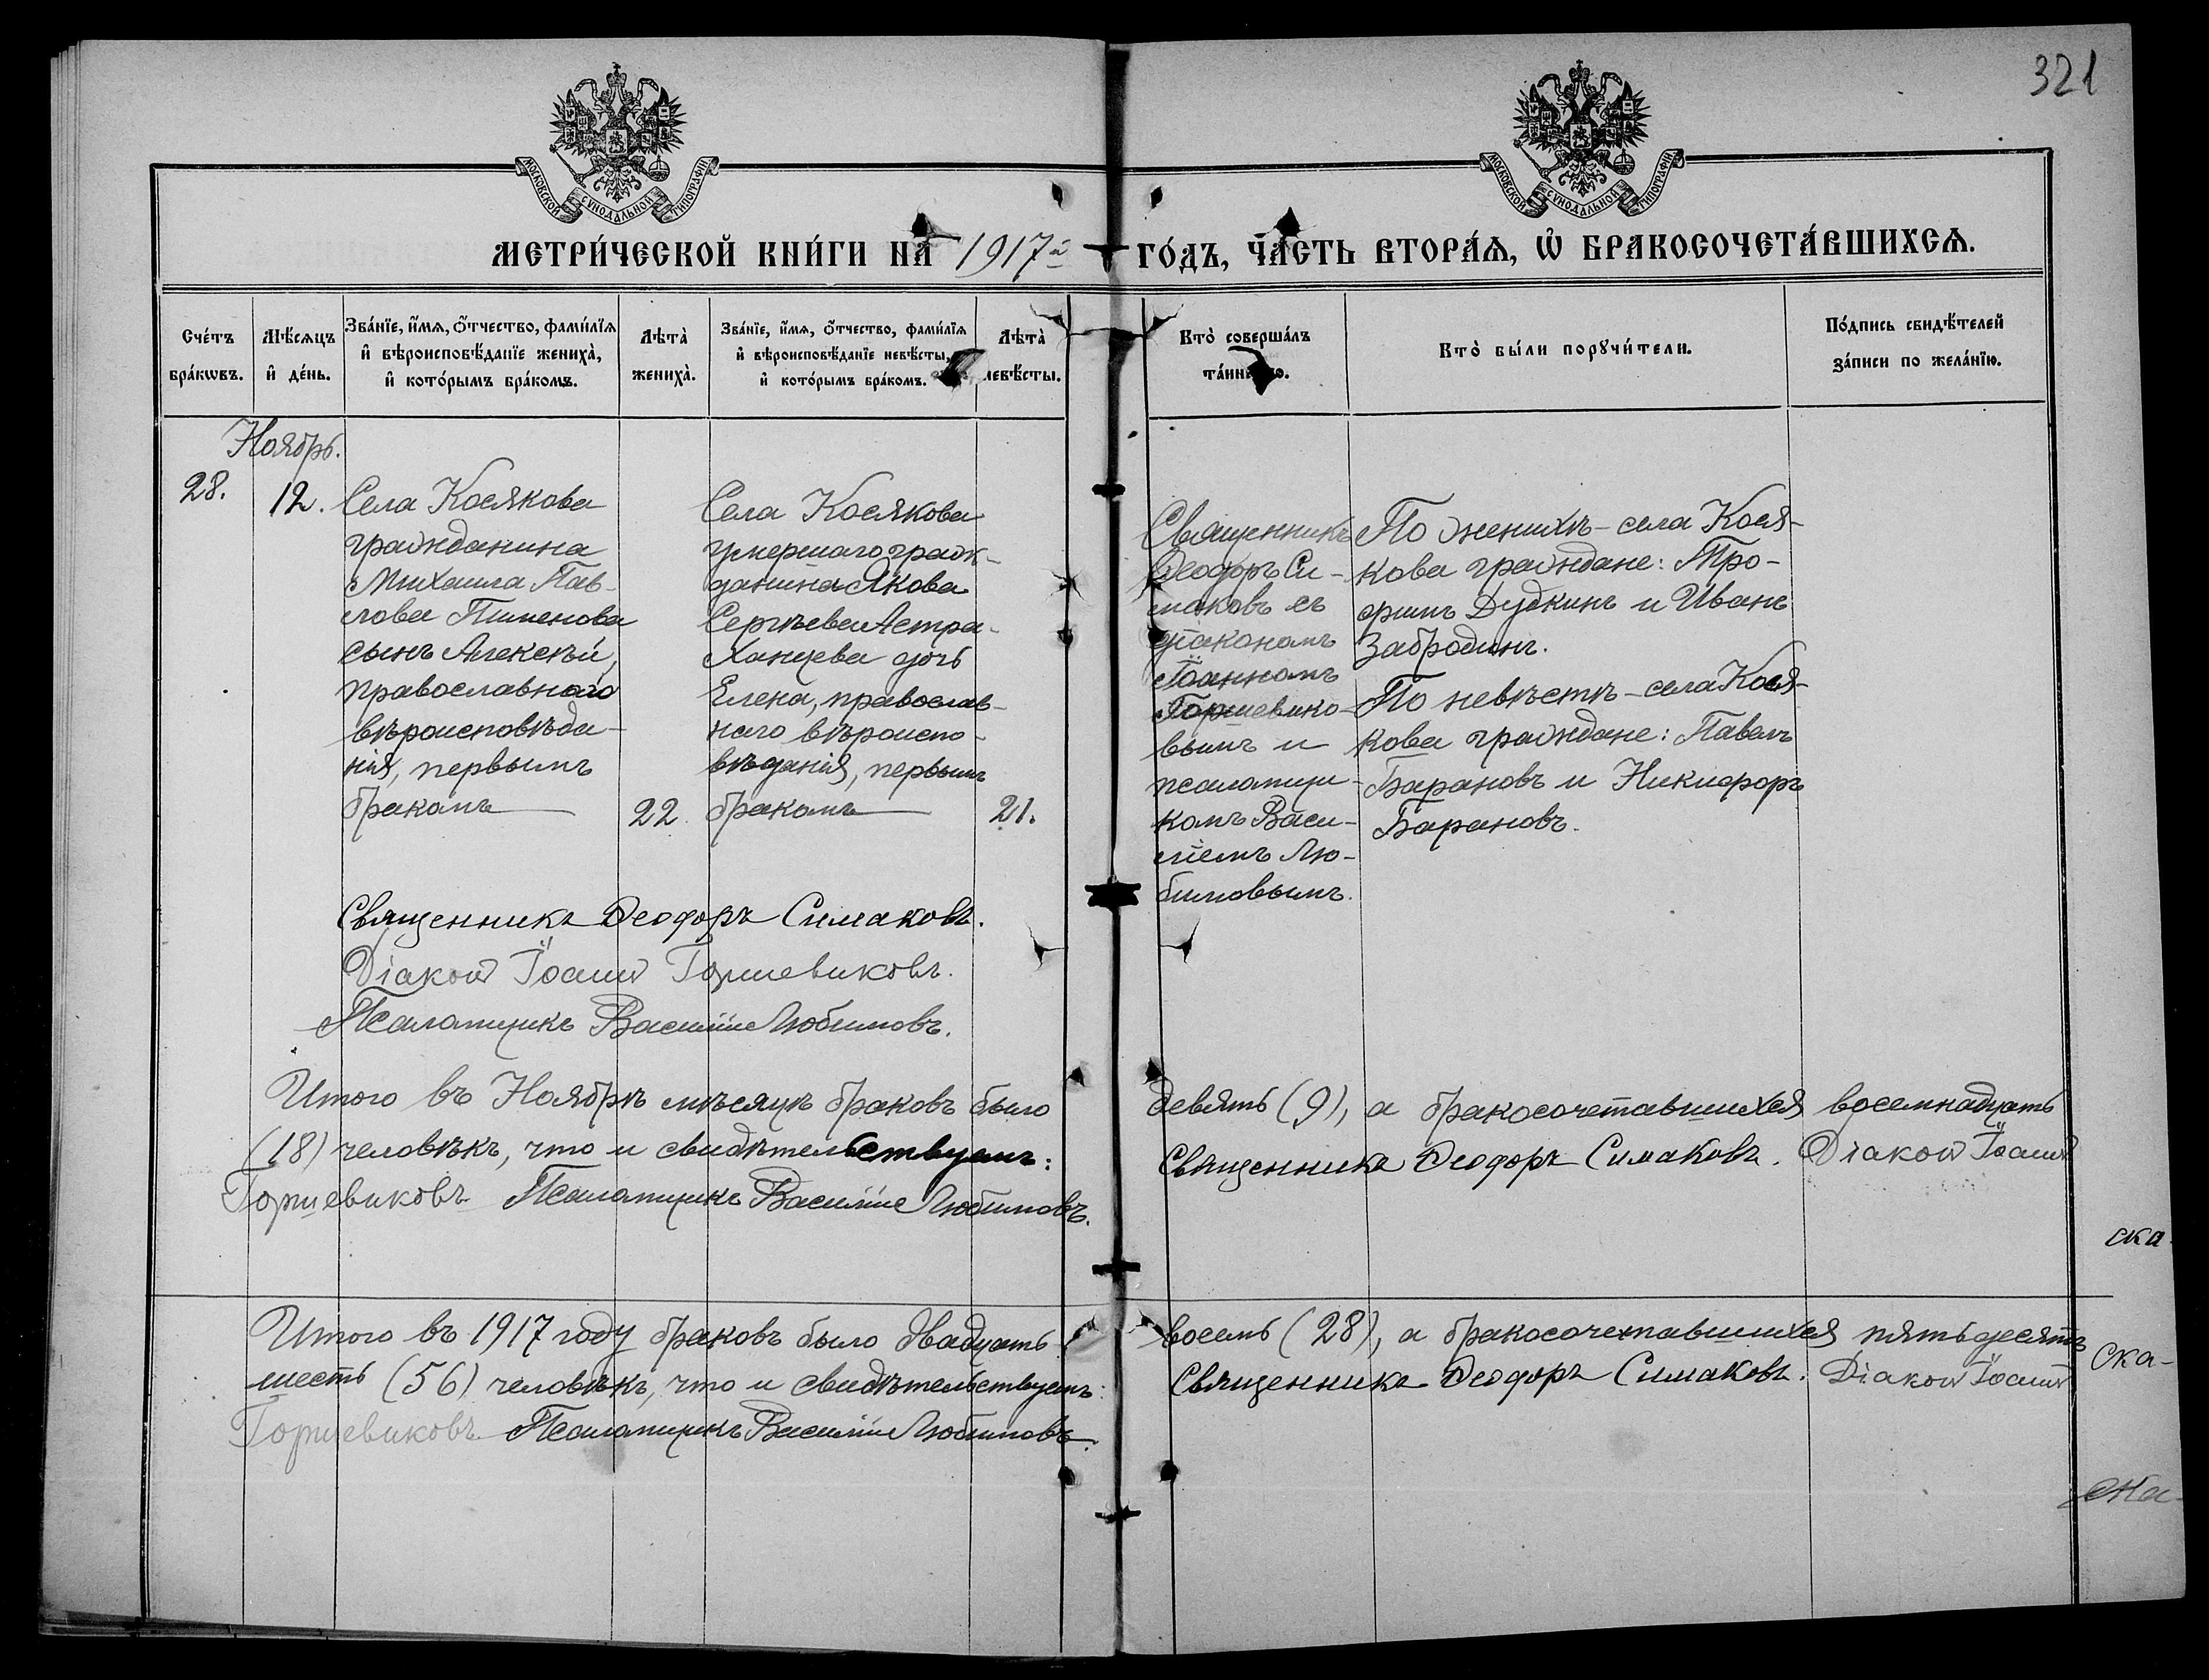 321
МОСКОВСКОЙ СУНОДАЛЬНОЙ ТИПОГРАФІИ
МОСКОВСКОЙ СУНОДАЛЬНОЙ ТИПОГРАФІИ
МЕТРИ́ЧЕСКОЙ КНИ́ГИ НА 1917й ГО́ДЪ, ЧА́СТЬ ВТОРА́Ѧ, Ѡ҆ БРАКОСОЧЕТА́ВШИХСѦ.
Сче́тъ бра́кѡвъ.
Мѣ́сѧцъ и҆ де́нь.
Зва́нїе, и҆́мѧ, ѻ҆́тчество, фами́лїѧ и҆ вѣроисповѣ́данїе жениха̀, и҆ кото́рымъ бра́комъ.
Лѣта̀ жениха̀.
Зва́нїе, и҆́мѧ, ѻ҆́тчество, фами́лїѧ и҆ вѣроисповѣ́данїе невѣ́сты, и҆ кото́рымъ бра́комъ.
Лѣта̀ невѣ́сты.
Кто̀ соверша́лъ та́инство.
Кто̀ бы́ли порꙋчи́тели.
По́дпись свидѣ́телей за́писи по жела́нїю.
Ноябрь.
28.
12.
Села Косякова
гражданина
Михаила Пав-
лова Пименова
сынъ Алексѣй,
православнаго
вѣроисповѣда-
нія, первымъ
бракомъ
22
Села Косякова
умершаго граж-
данина Якова
Сергѣева Астра-
ханцева дочь
Елена, православ-
наго вѣроиспо-
вѣданія, первымъ
бракомъ
21.
Священникъ
Ѳеодоръ Си-
маковъ съ
діакономъ
Іоанномъ
Горшевико-
вымъ и
псаломщи-
комъ Васи-
ліемъ Лю-
бимовымъ.
По женихѣ - села Кося-
кова граждане: Тро-
фимъ Дудкинъ и Иванъ
Забродинъ.
По невѣстѣ - села Кося-
кова граждане: Павелъ
Барановъ и Никифоръ
Барановъ.
Священникъ Ѳеодоръ Симаковъ.
Діаконъ Іоаннъ Горшевиковъ.
Псаломщикъ Василій Любимовъ.
Итого въ Ноябрѣ мѣсяцѣ браковъ было девять (9), а бракосочетавшихся восемнадцать
(18) человѣкъ, что и свидѣтельствуемъ: Священникъ Ѳеодоръ Симаковъ. Діаконъ Іоаннъ
Горшевиковъ Псаломщикъ Василій Любимовъ.
ска
Итого въ 1917 году браковъ было двадцать восемь (28), а бракосочетавшихся пятьдесятъ
шесть (56) человѣкъ, что и свидѣтельствуемъ: Священникъ Ѳеодоръ Симаковъ. Діаконъ Іоаннъ
ска-
Горшевиковъ. Псаломщикъ Василій Любимовъ.